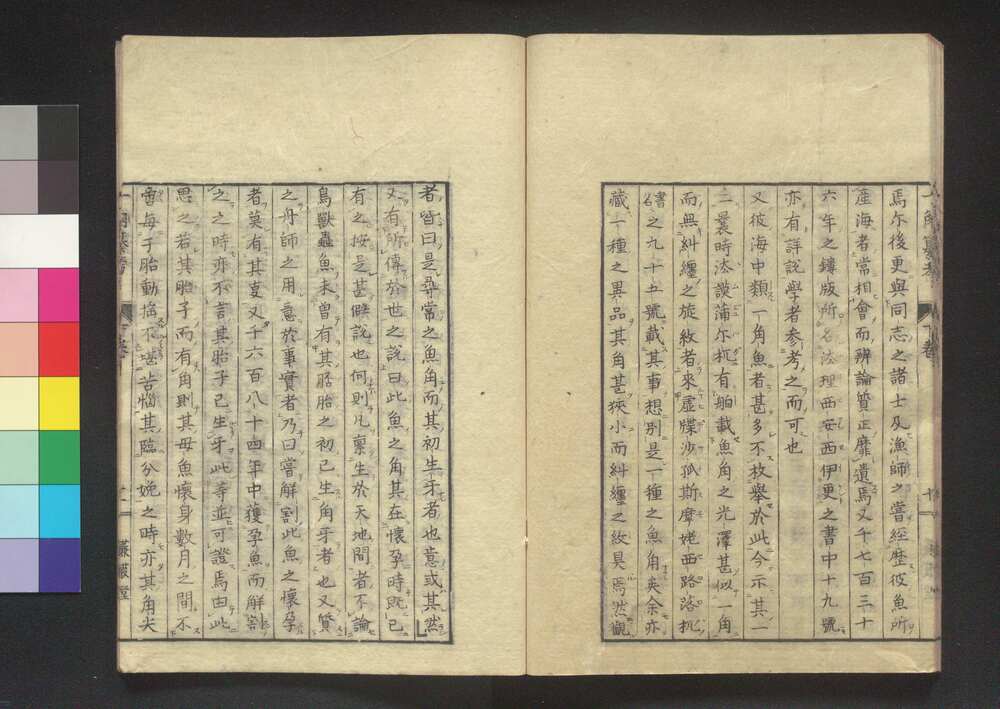 焉尓後更與同志之諸士及漁師之嘗經歴彼魚所
産海者常相會而辨論質正靡遺焉又千七百三十
六年之鏤版所名法理西安西伊更之書中十九號
亦有詳説學者參考之而可也
又彼海中類一角魚者甚多不枚擧於此今示其一
二曩時法謨蒲尓杌有舶載魚角之光澤甚似一角
而無糾纏之旋紋者來虚牒沙孤斯摩姥西路洛杌
書名之九十五號載其事想別是一種之魚角矣余亦
藏一種之異品其角甚狹小而糾纏之紋具焉然觀
者皆曰是尋常之魚角而其初生牙者也意或其然
又有所傳於世之説曰此魚之角其在懷孕時既已
有之按是甚僻説也何則凡稟生於天地間者不論
鳥獸蟲魚未曾有其胎胎之初已生角牙者也又質
之舟師之用意於事實者乃曰嘗解割此魚之懷孕
者莫有其䕫又千六百八十四年中獲孕魚而解割
之之時亦不言其胎子已生牙此等並可證焉由此
思之若其胎子而有角則其母魚懷身數月之間不
啻每于胎動搐不堪苦惱其臨分娩之時亦其角尖